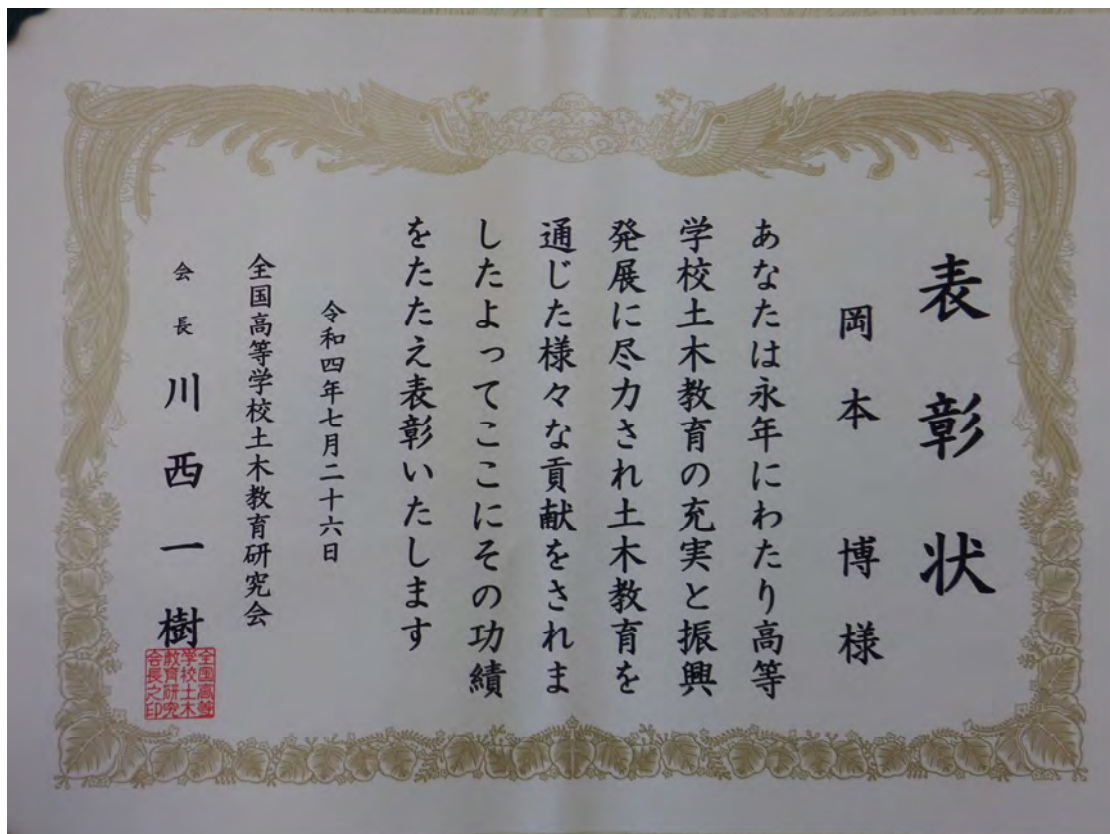 表彰状
岡本 博様
あなたは永年にわたり高等
学校土木教育の充実と振興
発展に尽力され土木教育を
通じた様々な貢献をされま
したよってここにその功績
をたたえ表彰いたします
令和四年七月二十六日
全国高等学校土木教育研究会
会長 川西一樹
全国高等
学校土木
教育研究
会長之印